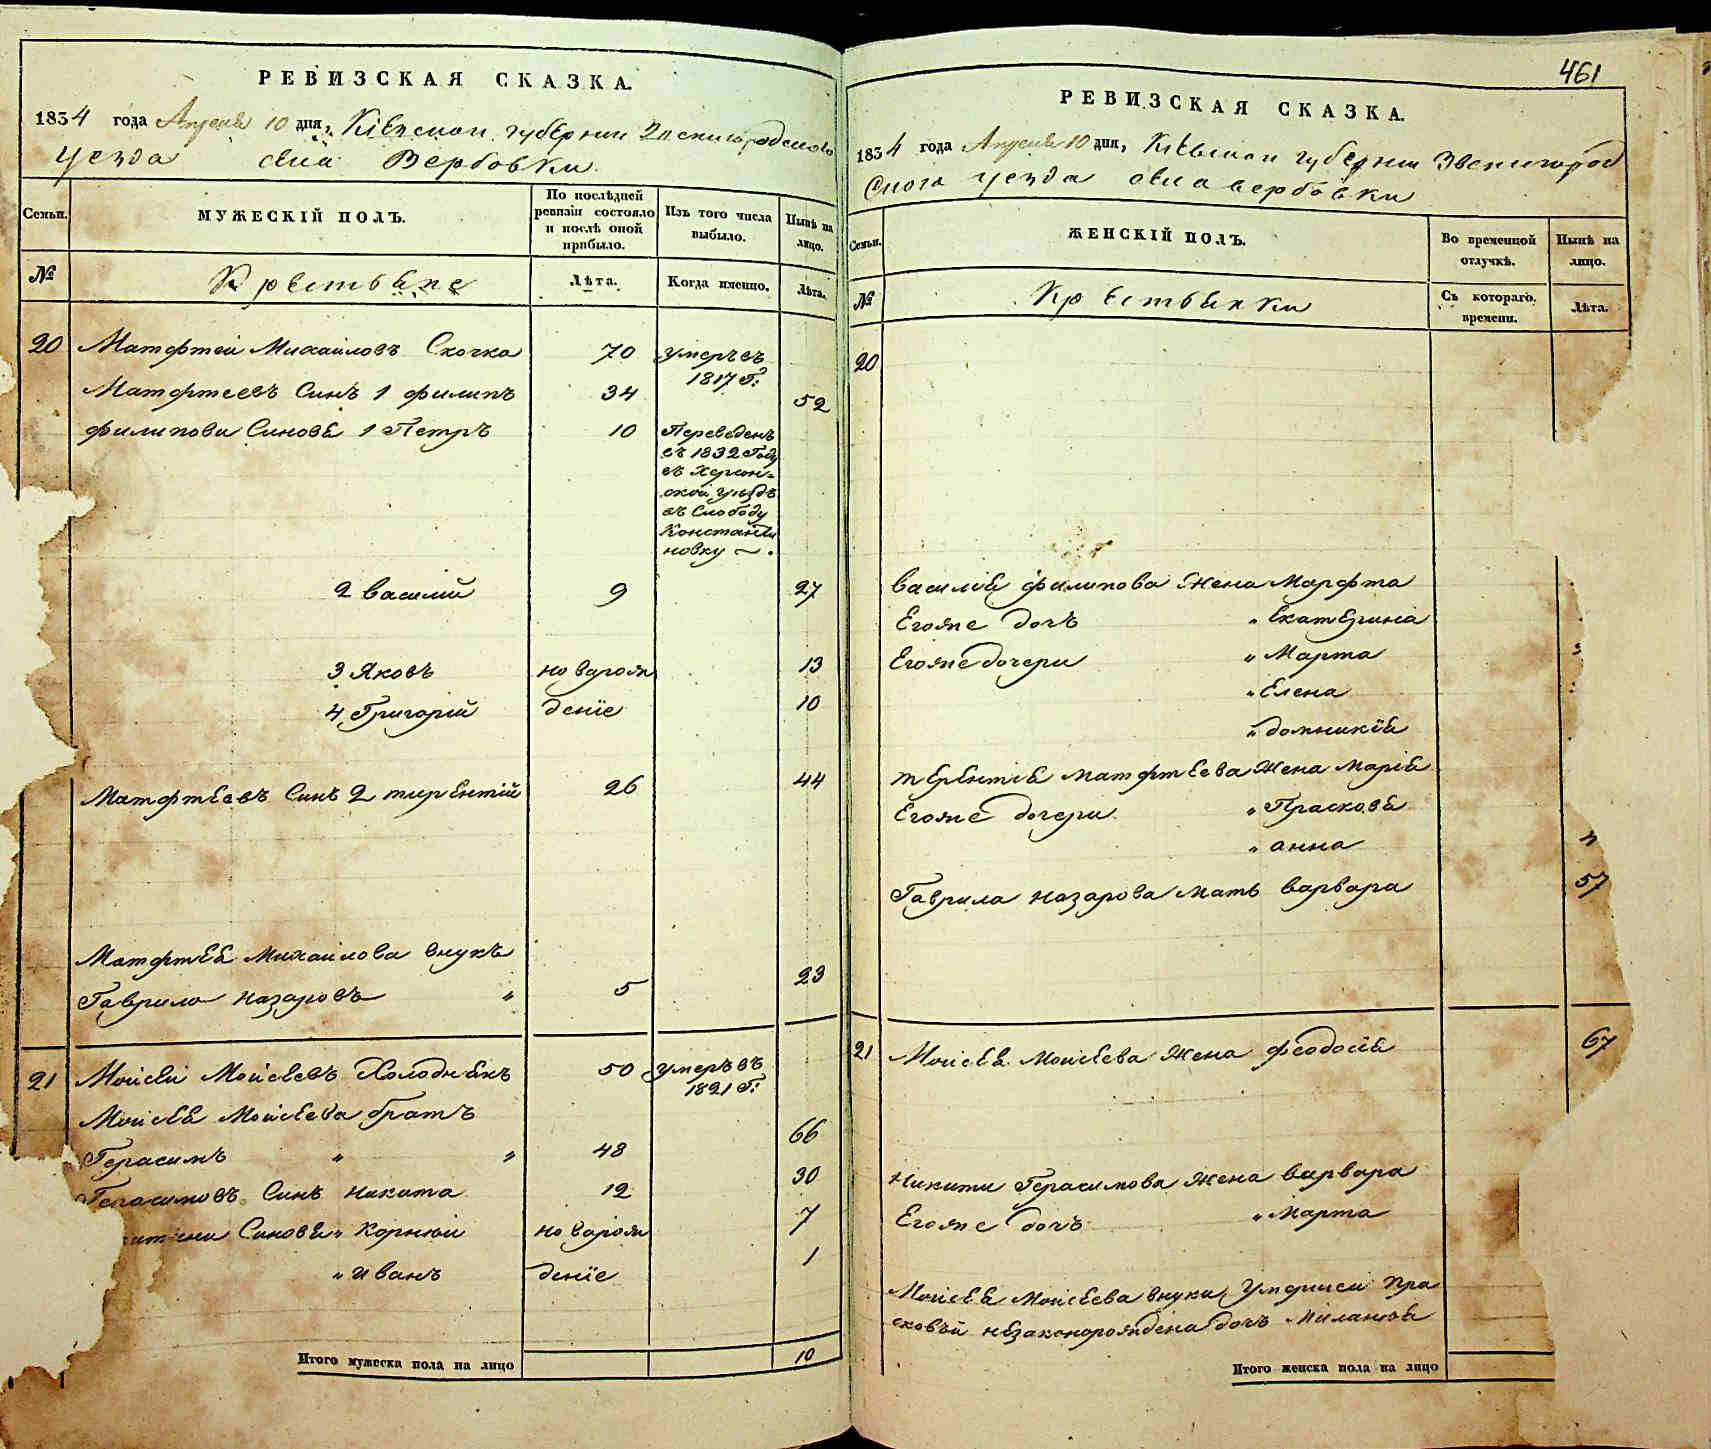 РЕВИЗСКАЯ СКАЗКА.
1834 года Апреля 10 дня, Кіевской губерніи Звенигородского
уезда села Вербовки
Семьи. МУЖЕСКІЙ ПОЛЪ. По послѣдней ревизіи состояло и послѣ оной прибыло. Изъ того числа выбыло. Нынѣ на лицо.
№ Крестьяне Лѣта. Когда именно. Лѣта.
20 Матфтей Михайловъ Скочко 70 умеръ въ
1817 г:
Матфтеевъ Синъ 1 филипъ 34 52
филипови Синовѣ 1 Петръ 10 Переведенъ
въ 1832 Году
въ Херсон=
ской уѣздъ
въ Слободу
Константи
новку
2 василій 9 27
3 Яковъ новорож 13
4 Григорій деніе 10
Матфтѣевъ Синъ 2 терентій 26 44
Матфтѣя Михайлова внукъ
Гаврило назаровъ „ 5 23
21 Мойсѣй Мойсѣевъ Холоднякъ 50 умеръ въ
1821 г:
Мойсѣя Мойсѣева братъ
Герасимъ „ „ 48 66
Герасимовъ Синъ никита 12 30
Синовѣ „ Корнѣй новорож 7
„ иванъ деніе 1
Итого мужеска пола на лицо 10
461
РЕВИЗСКАЯ СКАЗКА.
1834 года Апреля 10 дня, Кіевской губерніи Звенигород
Ского уезда села вербовки
Семьи. ЖЕНСКІЙ ПОЛЪ. Во временной отлучкѣ. Нынѣ на лицо.
№ Крестьянки Съ котораго времени. Лѣта.
20
василія филипова жена Марфта
Егоже дочъ „ Екатерина
Егоже дочери „ Марта
„ Елена
„ домникія
терентія матфтѣева жена марія
Егоже дочери „ Прасковя
„ анна
Гаврила назарова мать варвара 57
21 Мойсѣя Мойсѣева жена феодосія 67
никити Герасимова жена варвара
Егоже дочъ „ Марта
Мойсѣя Мойсѣева внуки, умершей Пра
сковъи незаконорождена дочъ Миланія
Итого женска пола на лицо